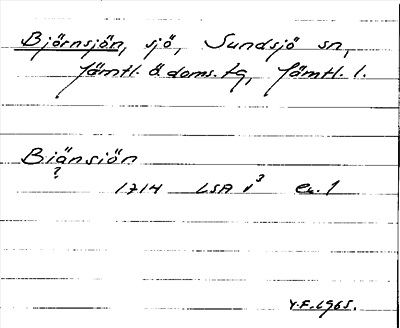 Björnsjön, sjö, Sundsjö sn,
Jämtl. ö. doms. tg, Jämtl. l.
Biänsiön
?
1714 LSA N³ Ex. 1
Y.F. 1965.